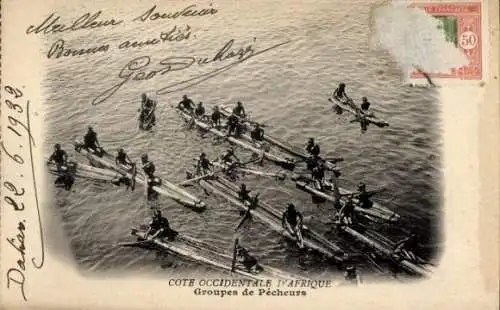 Meilleur Souvenir
Bonnes amitiés
Geo
Dakar 22.6.1932
50
COTE OCCIDENTALE D'AFRIQUE
Groupes de Pêcheurs